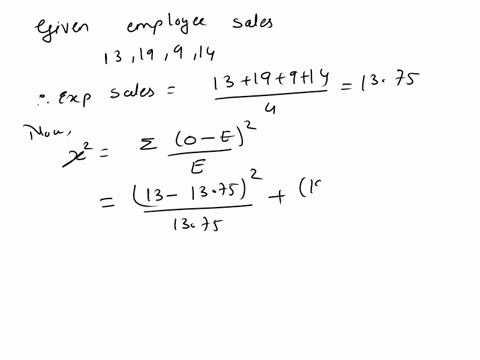 Given employee sales
13, 19, 9, 14
∴ Exp sales = (13+19+9+14)/4 = 13.75
Now,
x² = Σ (O-E)²/E
= (13 - 13.75)²/13.75 + (1